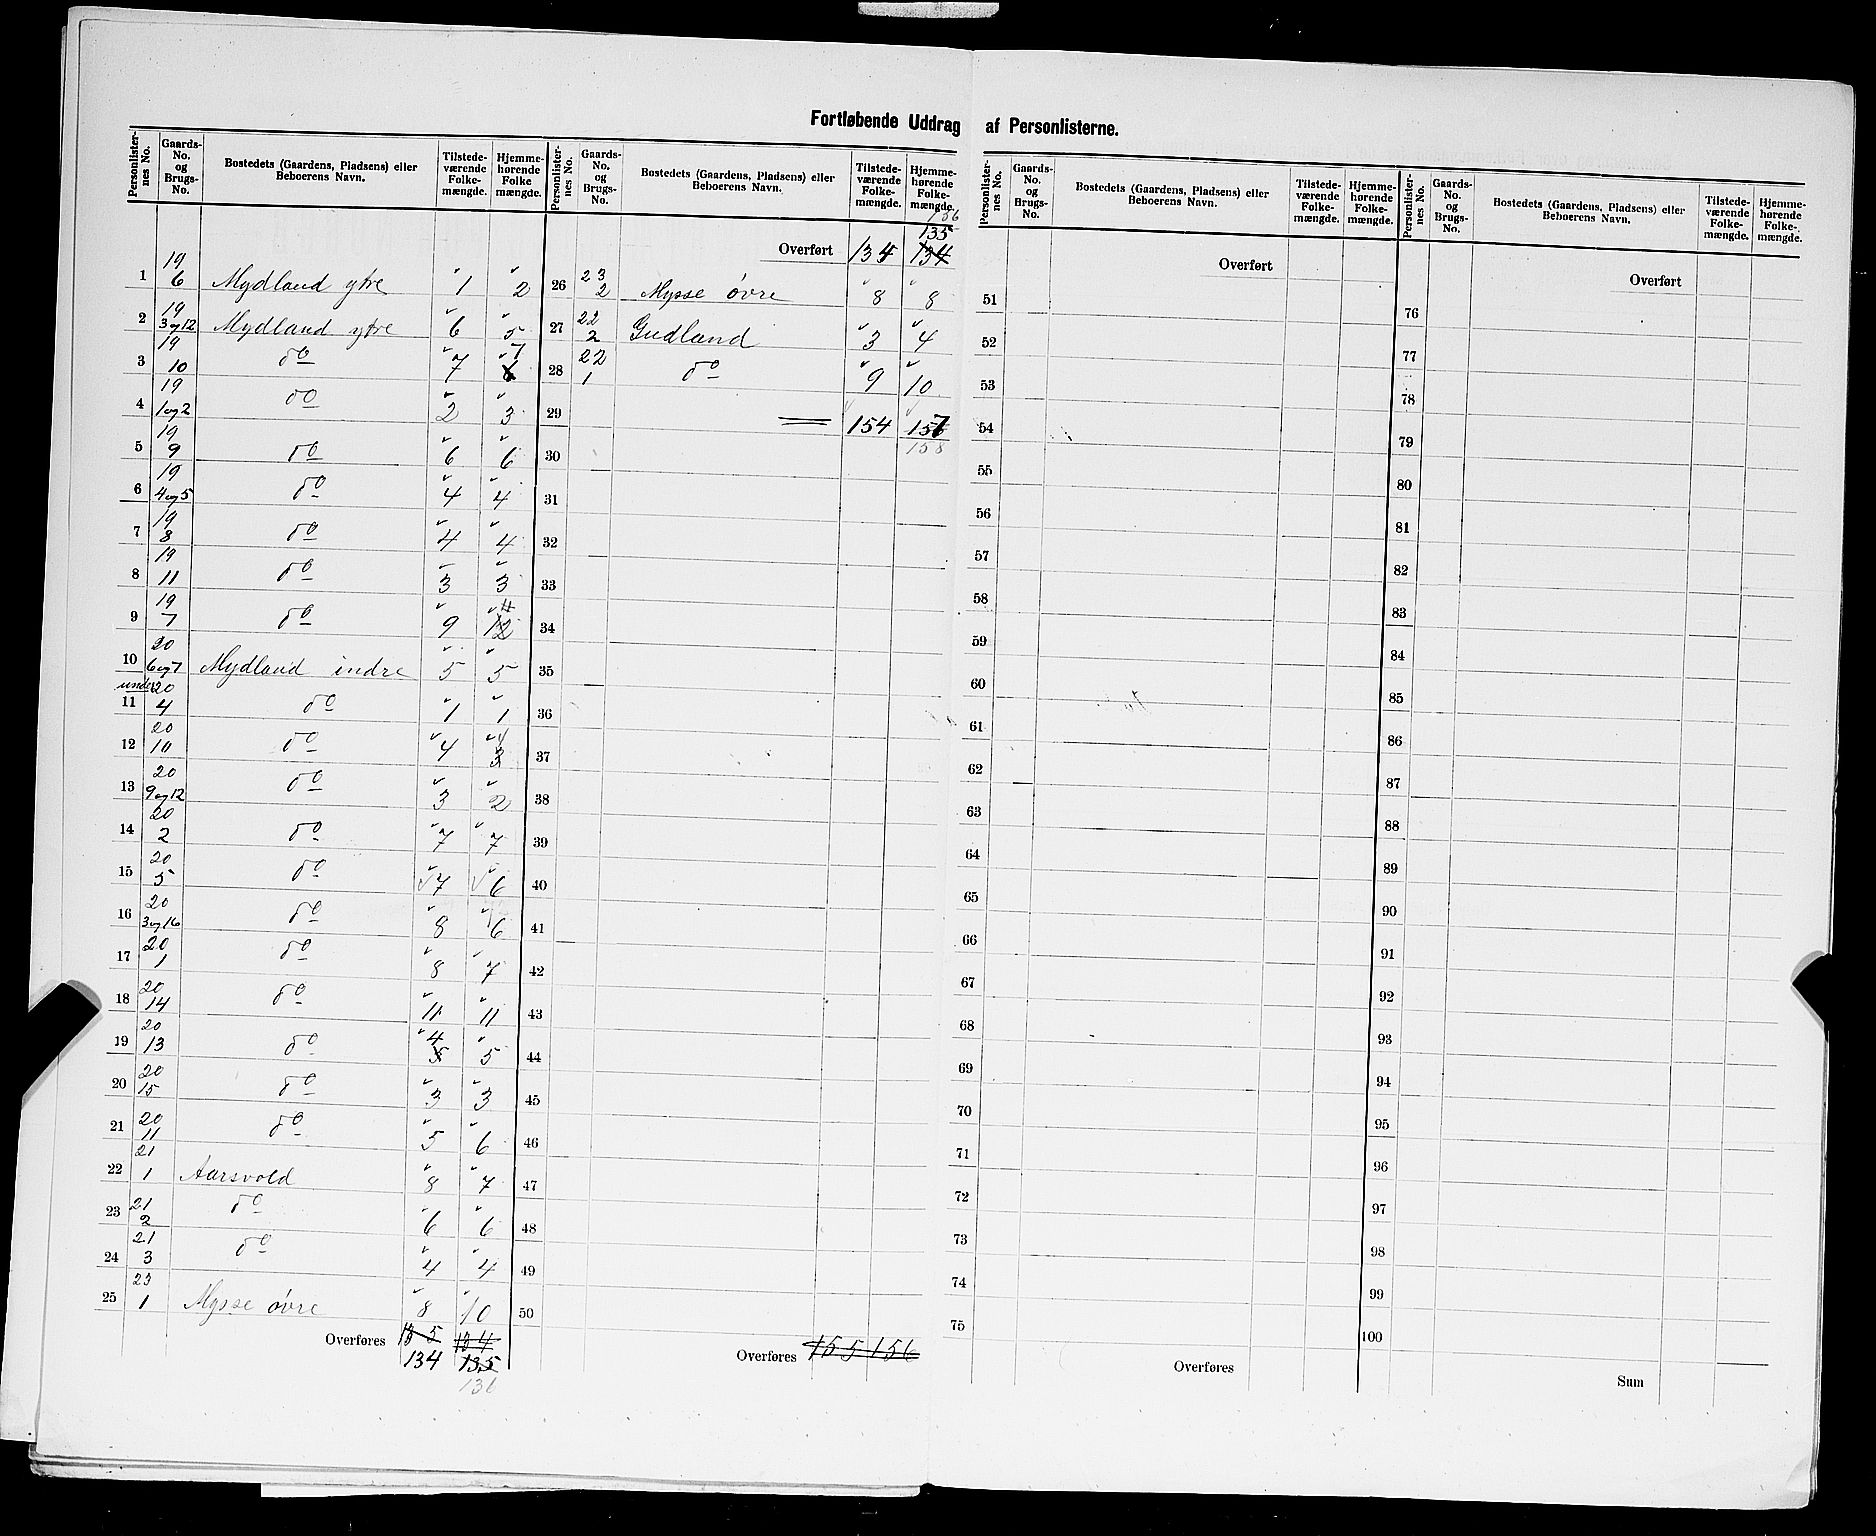 Fortløbende Uddrag af Personlisterne.
Personlister-nes No. | Gaards-No. og Brugs-No. | Bostedets (Gaardens, Pladsens) eller Beboerens Navn. | Tilstede-værende Folke-mængde. | Hjemme-hørende Folke mængde.
1 | 19 6 | Mydland ytre | 1 | 2
2 | 19 3og12 | Mydland ytre | 6 | 5
3 | 19 10 | do | 7 | 7
4 | 19 1og2 | do | 2 | 3
5 | 19 9 | do | 6 | 6
6 | 19 4og5 | do | 4 | 4
7 | 19 8 | do | 4 | 4
8 | 19 11 | do | 3 | 3
9 | 19 7 | do | 9 | 12 11
10 | 20 6og7 | Mydland indre | 5 | 5
11 | under 20 4 | do | 1 | 1
12 | 20 10 | do | 4 | 3 4
13 | 20 9og12 | do | 3 | 2
14 | 20 2 | do | 7 | 7
15 | 20 5 | do | 7 | 6
16 | 20 3og16 | do | 8 | 6
17 | 20 1 | do | 8 | 7
18 | 20 14 | do | 11 | 11
19 | 20 13 | do | 5 4 | 5
20 | 20 15 | do | 3 | 3
21 | 20 11 | do | 5 | 6
22 | 21 1 | Aarsvold | 8 | 7
23 | 21 2 | do | 6 | 6
24 | 21 3 | do | 4 | 4
25 | 23 1 | Mysse øvre | 8 | 10
Overføres | 135 | 134
134 | 135
136
Personlister-nes No. | Gaards-No. og Brugs-No. | Bostedets (Gaardens, Pladsens) eller Beboerens Navn. | Tilstede-værende Folke-mængde. | Hjemme-hørende Folke-mængde.
136
135
Overført | 134 | 134
26 | 23 2 | Mysse øvre | 8 | 8
27 | 22 2 | Gudland | 3 | 4
28 | 22 1 | do | 9 | 10
29 | 154 | 157
30 | 158
31
32
33
34
35
36
37
38
39
40
41
42
43
44
45
46
47
48
49
50
Overføres 155 156
Personlister-nes No. | Gaards-No. og Brugs-No. | Bostedets (Gaardens, Pladsens) eller Beboerens Navn. | Tilstede-værende Folke-mængde. | Hjemme-hørende Folke-mængde.
Overført
51
52
53
54
55
56
57
58
59
60
61
62
63
64
65
66
67
68
69
70
71
72
73
74
75
Overføres
Personlister-nes No. | Gaards-No. og Brugs-No. | Bostedets (Gaardens, Pladsens) eller Beboerens Navn. | Tilstede-værende Folke-mængde. | Hjemme-hørende Folke-mængde.
Overført
76
77
78
79
80
81
82
83
84
85
86
87
88
89
90
91
92
93
94
95
96
97
98
99
100
Sum